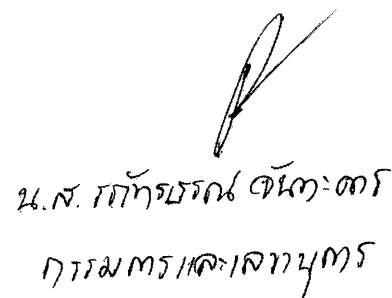 น.ส. รภัทรบรรณ จันทะดาร
กรรมการและเลขานุการ